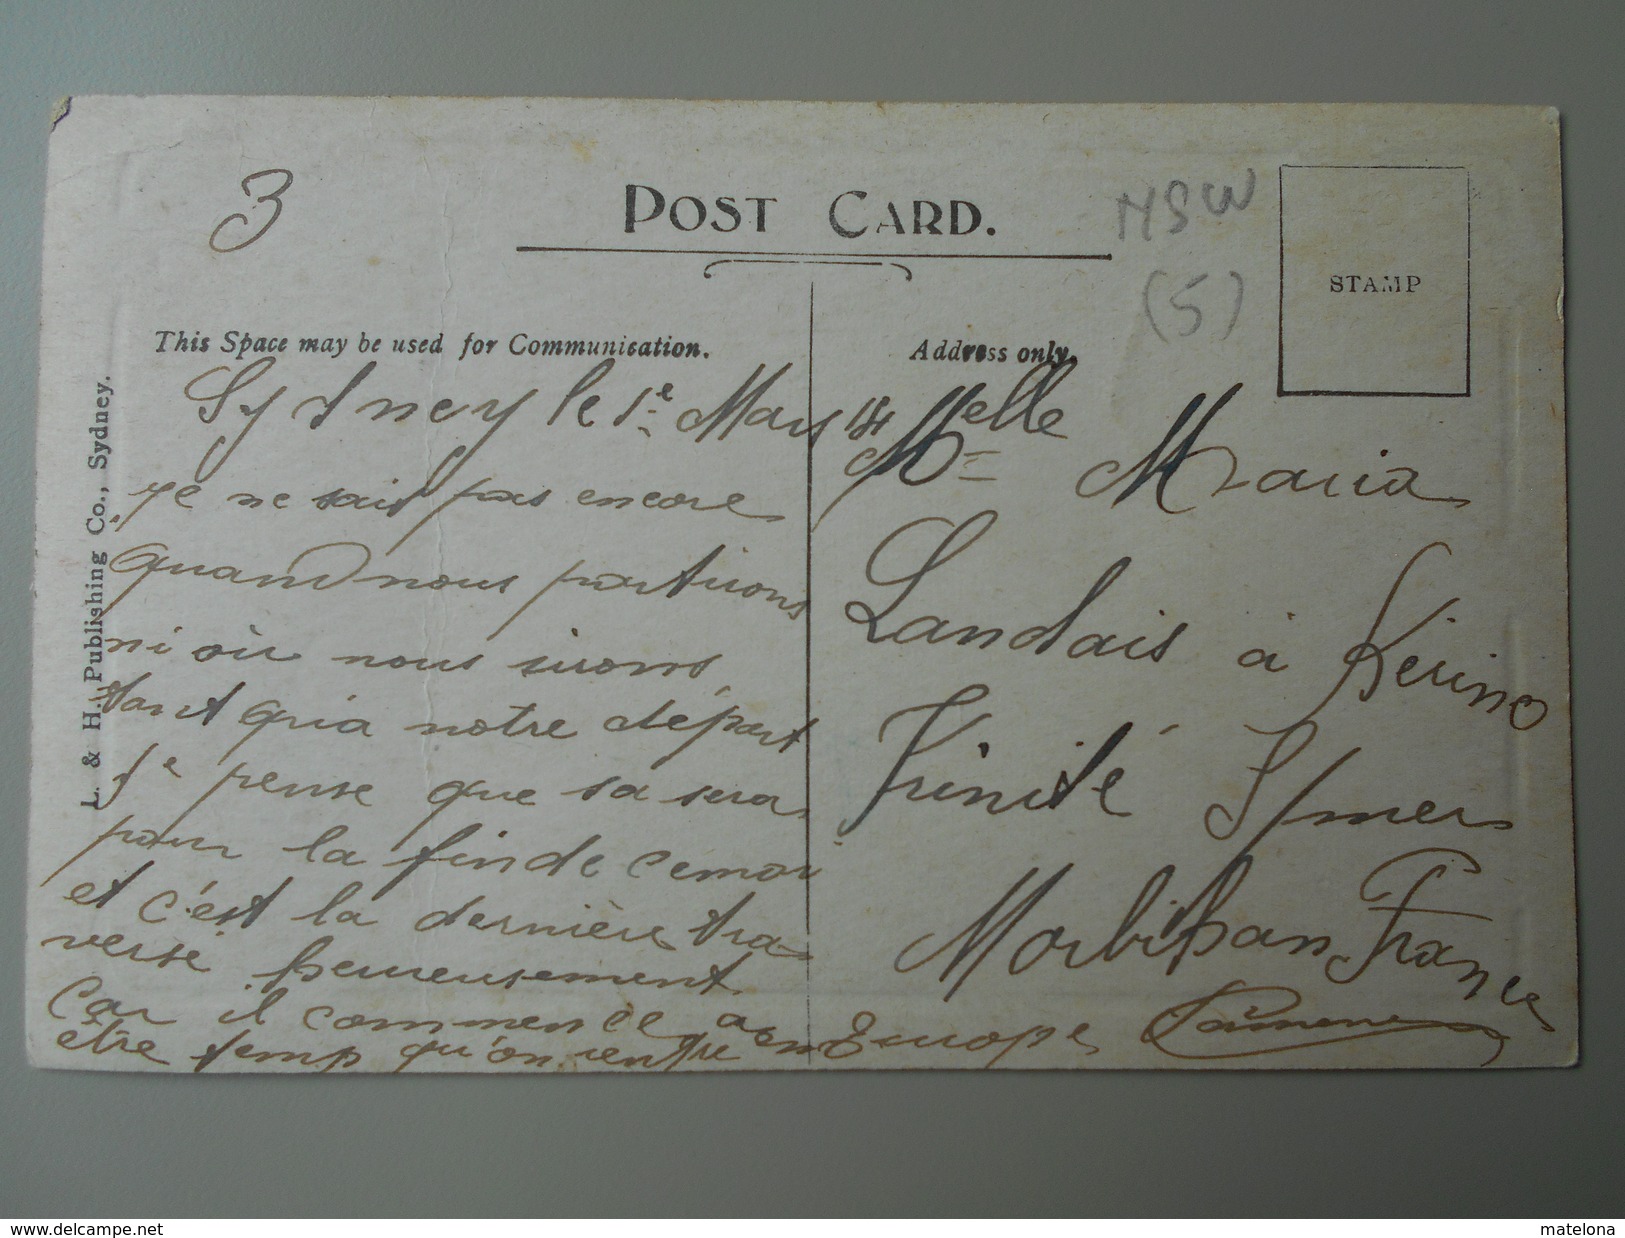 3
POST CARD.
NSW
(5)
STAMP
This Space may be used for Communication.
Address only.
L. & H. Publishing Co., Sydney.
Sydney le 1e Mars
je ne sait pas encore
quand nous partirons
ni où nous irons
tant qu'a notre départ
Je pense que sa sera
pour la fin de ce moi
et c'est la dernière tra-
versé heureusement
Car il commence a
être temp qu'on rentre en Europe
Melle
Maria
Landais à Kerino
Trinité S/mer
Morbihan France
www.delcampe.net
matelona